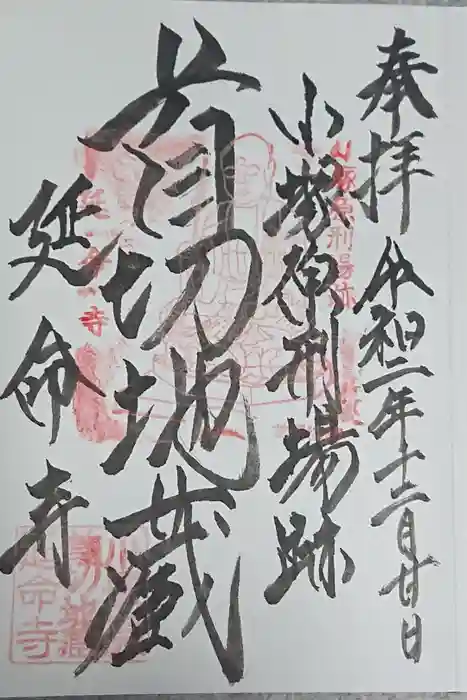 奉拝 令和二年十二月廿日
小塚原刑場跡
首切地蔵
延命寺
小塚原刑場跡
延命寺